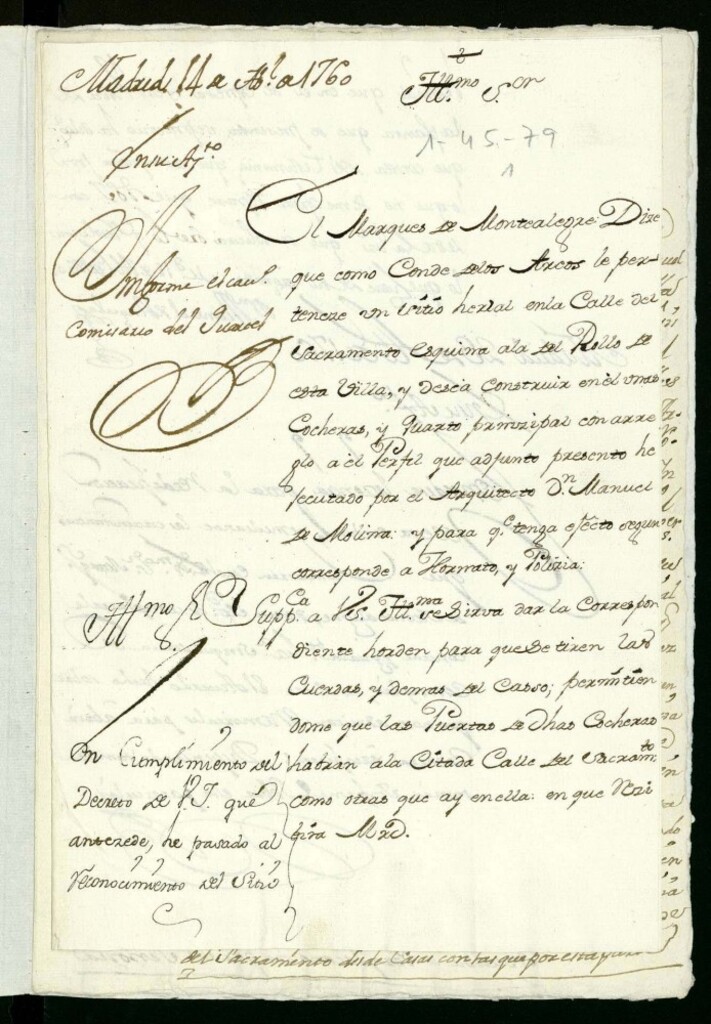 Madrid 14 de Ab.l de 1760
Ill.mo S.or
1-45-79
1
En su Ay.to
Informe el cav.o
Comisario del Quartel
El Marques de Montealegre: Dize
que como Conde de los Arcos le per-
teneze un sitio herial en la Calle del
Sacramento esquina a la del Rollo de
esta Villa, y desea construir en èl unas
Cocheras, y Quarto prinzipal con arre
glo a el Perfil que adjunto presento he
jecutado por el Arquitecto D.n Manuel
de Molina: y para q.e tenga efecto segun
corresponde a Hornato, y Polizia:
Supp.ca a V.S. Ill.ma se sirva dar la Correspon
diente horden para que se tiren las
Cuerdas, y demas del Casso; permitien
dome que las Puertas de dhas Cocheras
habran a la Citada Calle del Sacram.to
como otras que ay en ella: en que Rezi
bira Mrd.
Ill.mo S.
En Cumplimiento del
Decreto de V.I. que
antezede, he pasado al
reconocimiento del Sitio
del Sacramento desde Casas con las que por esta parte